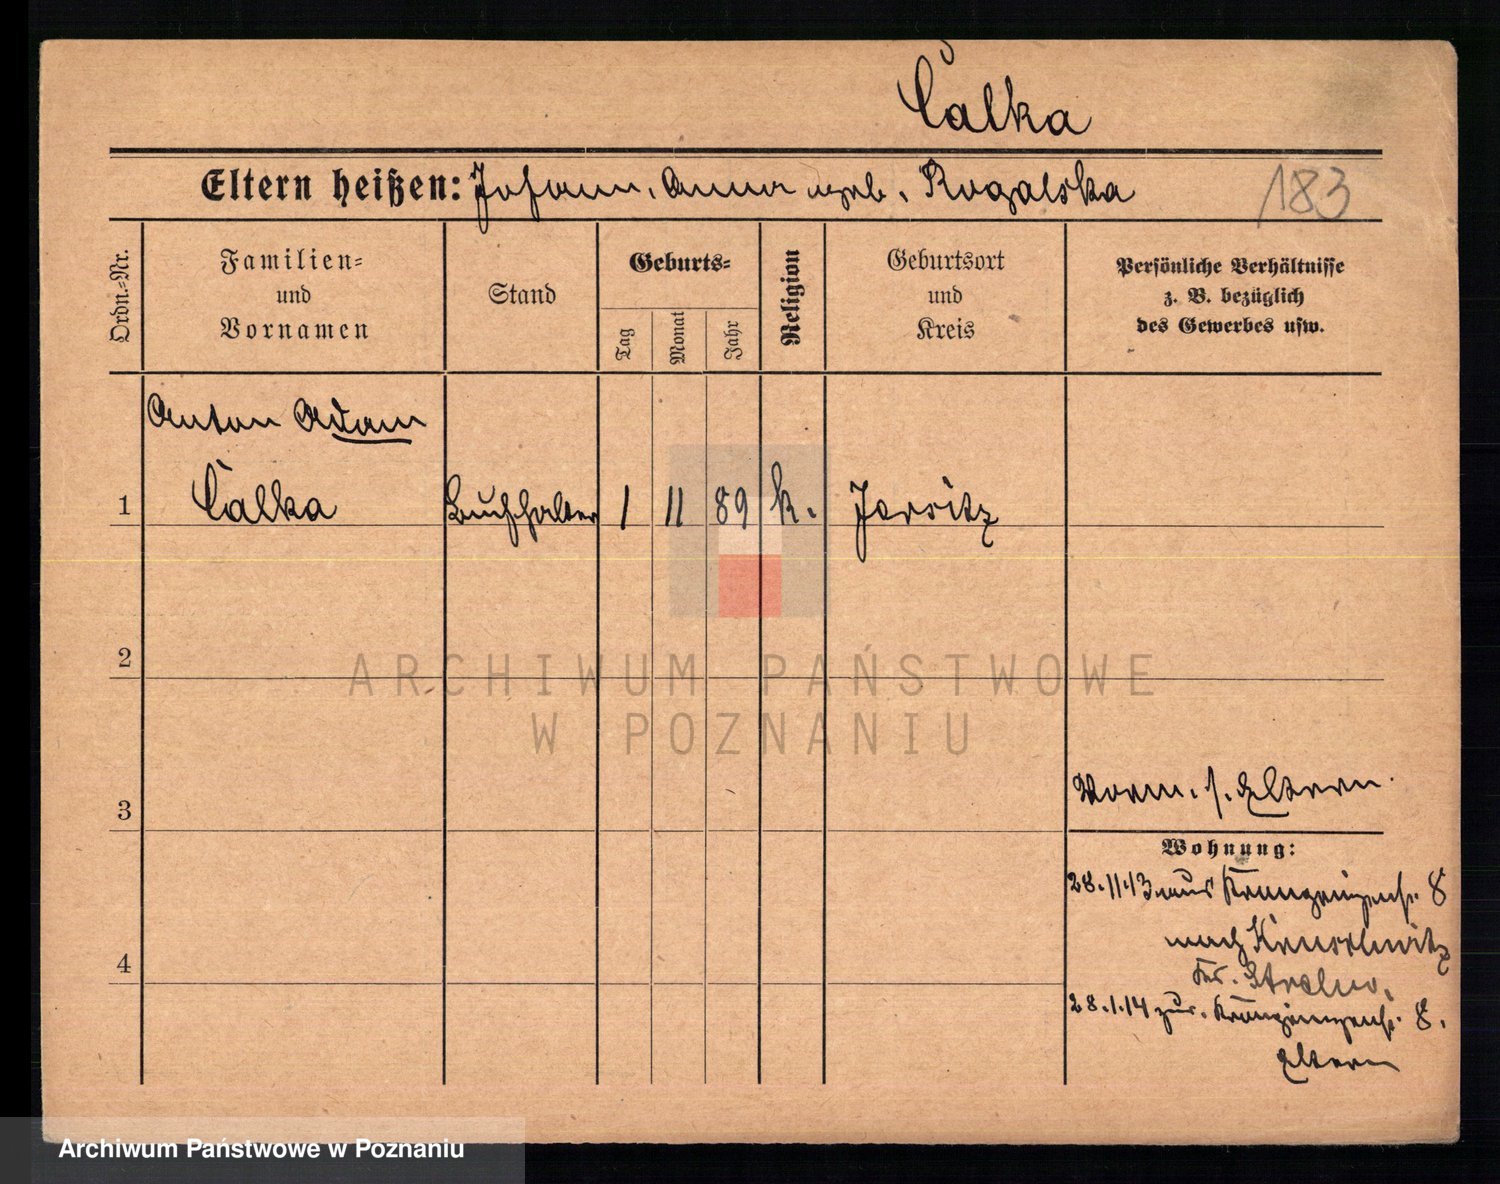 Calka
Eltern heißen: Johann, Anna geb. Rogalska
183
Ordn.-Nr.
Familien-
und
Vornamen
Stand
Geburts-
Tag
Monat
Jahr
Religion
Geburtsort
und
Kreis
Persönliche Verhältnisse
z. B. bezüglich
des Gewerbes usw.
Anton Adam
1 Calka Buchhalter 1 11 89 k. Jersitz
2
ARCHIWUM PAŃSTWOWE
W POZNANIU
3
Vorm. s. Eltern
Wohnung:
28.11.13 aus 8
nach
4
Strelno.
28.1.14 zur. 8.
Eltern
Archiwum Państwowe w Poznaniu